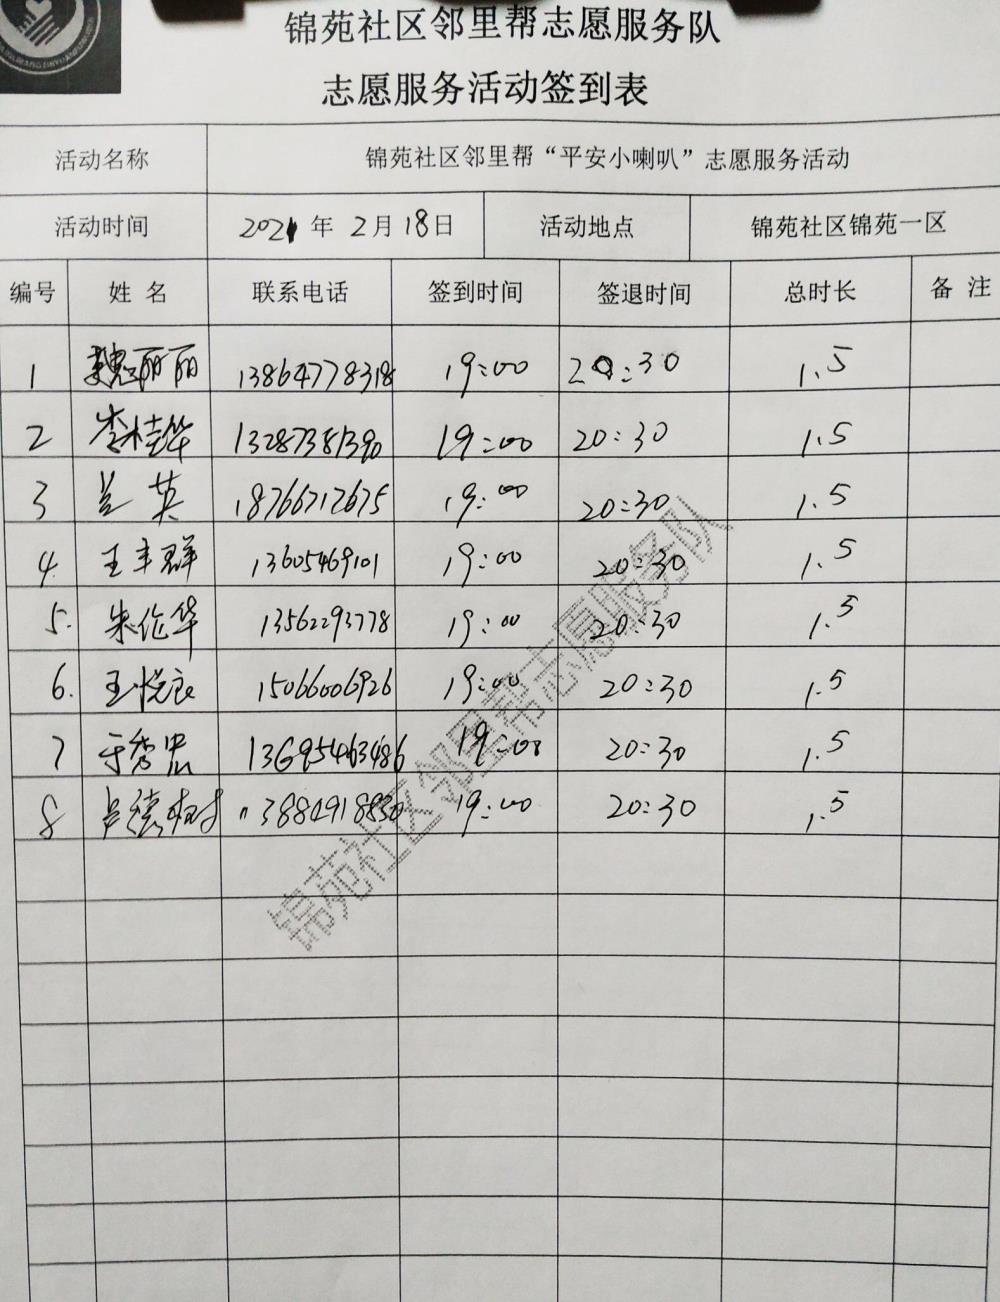 锦苑社区邻里帮志愿服务队
志愿服务活动签到表
活动名称 锦苑社区邻里帮“平安小喇叭”志愿服务活动
活动时间 2021年2月18日 活动地点 锦苑社区锦苑一区
编号 姓名 联系电话 签到时间 签退时间 总时长 备注
1 魏丽丽 13864778318 19:00 20:30 1.5
2 李桂华 13287381390 19:00 20:30 1.5
3 兰英 18766712675 19:00 20:30 1.5
4. 王丰群 13605469101 19:00 20:30 1.5
5. 朱伦华 13562293778 19:00 20:30 1.5
6. 王悦良 15066006926 19:00 20:30 1.5
7 于秀宏 13695463486 19:00 20:30 1.5
8 13884918830 19:00 20:30 1.5
锦苑社区邻里帮志愿服务队